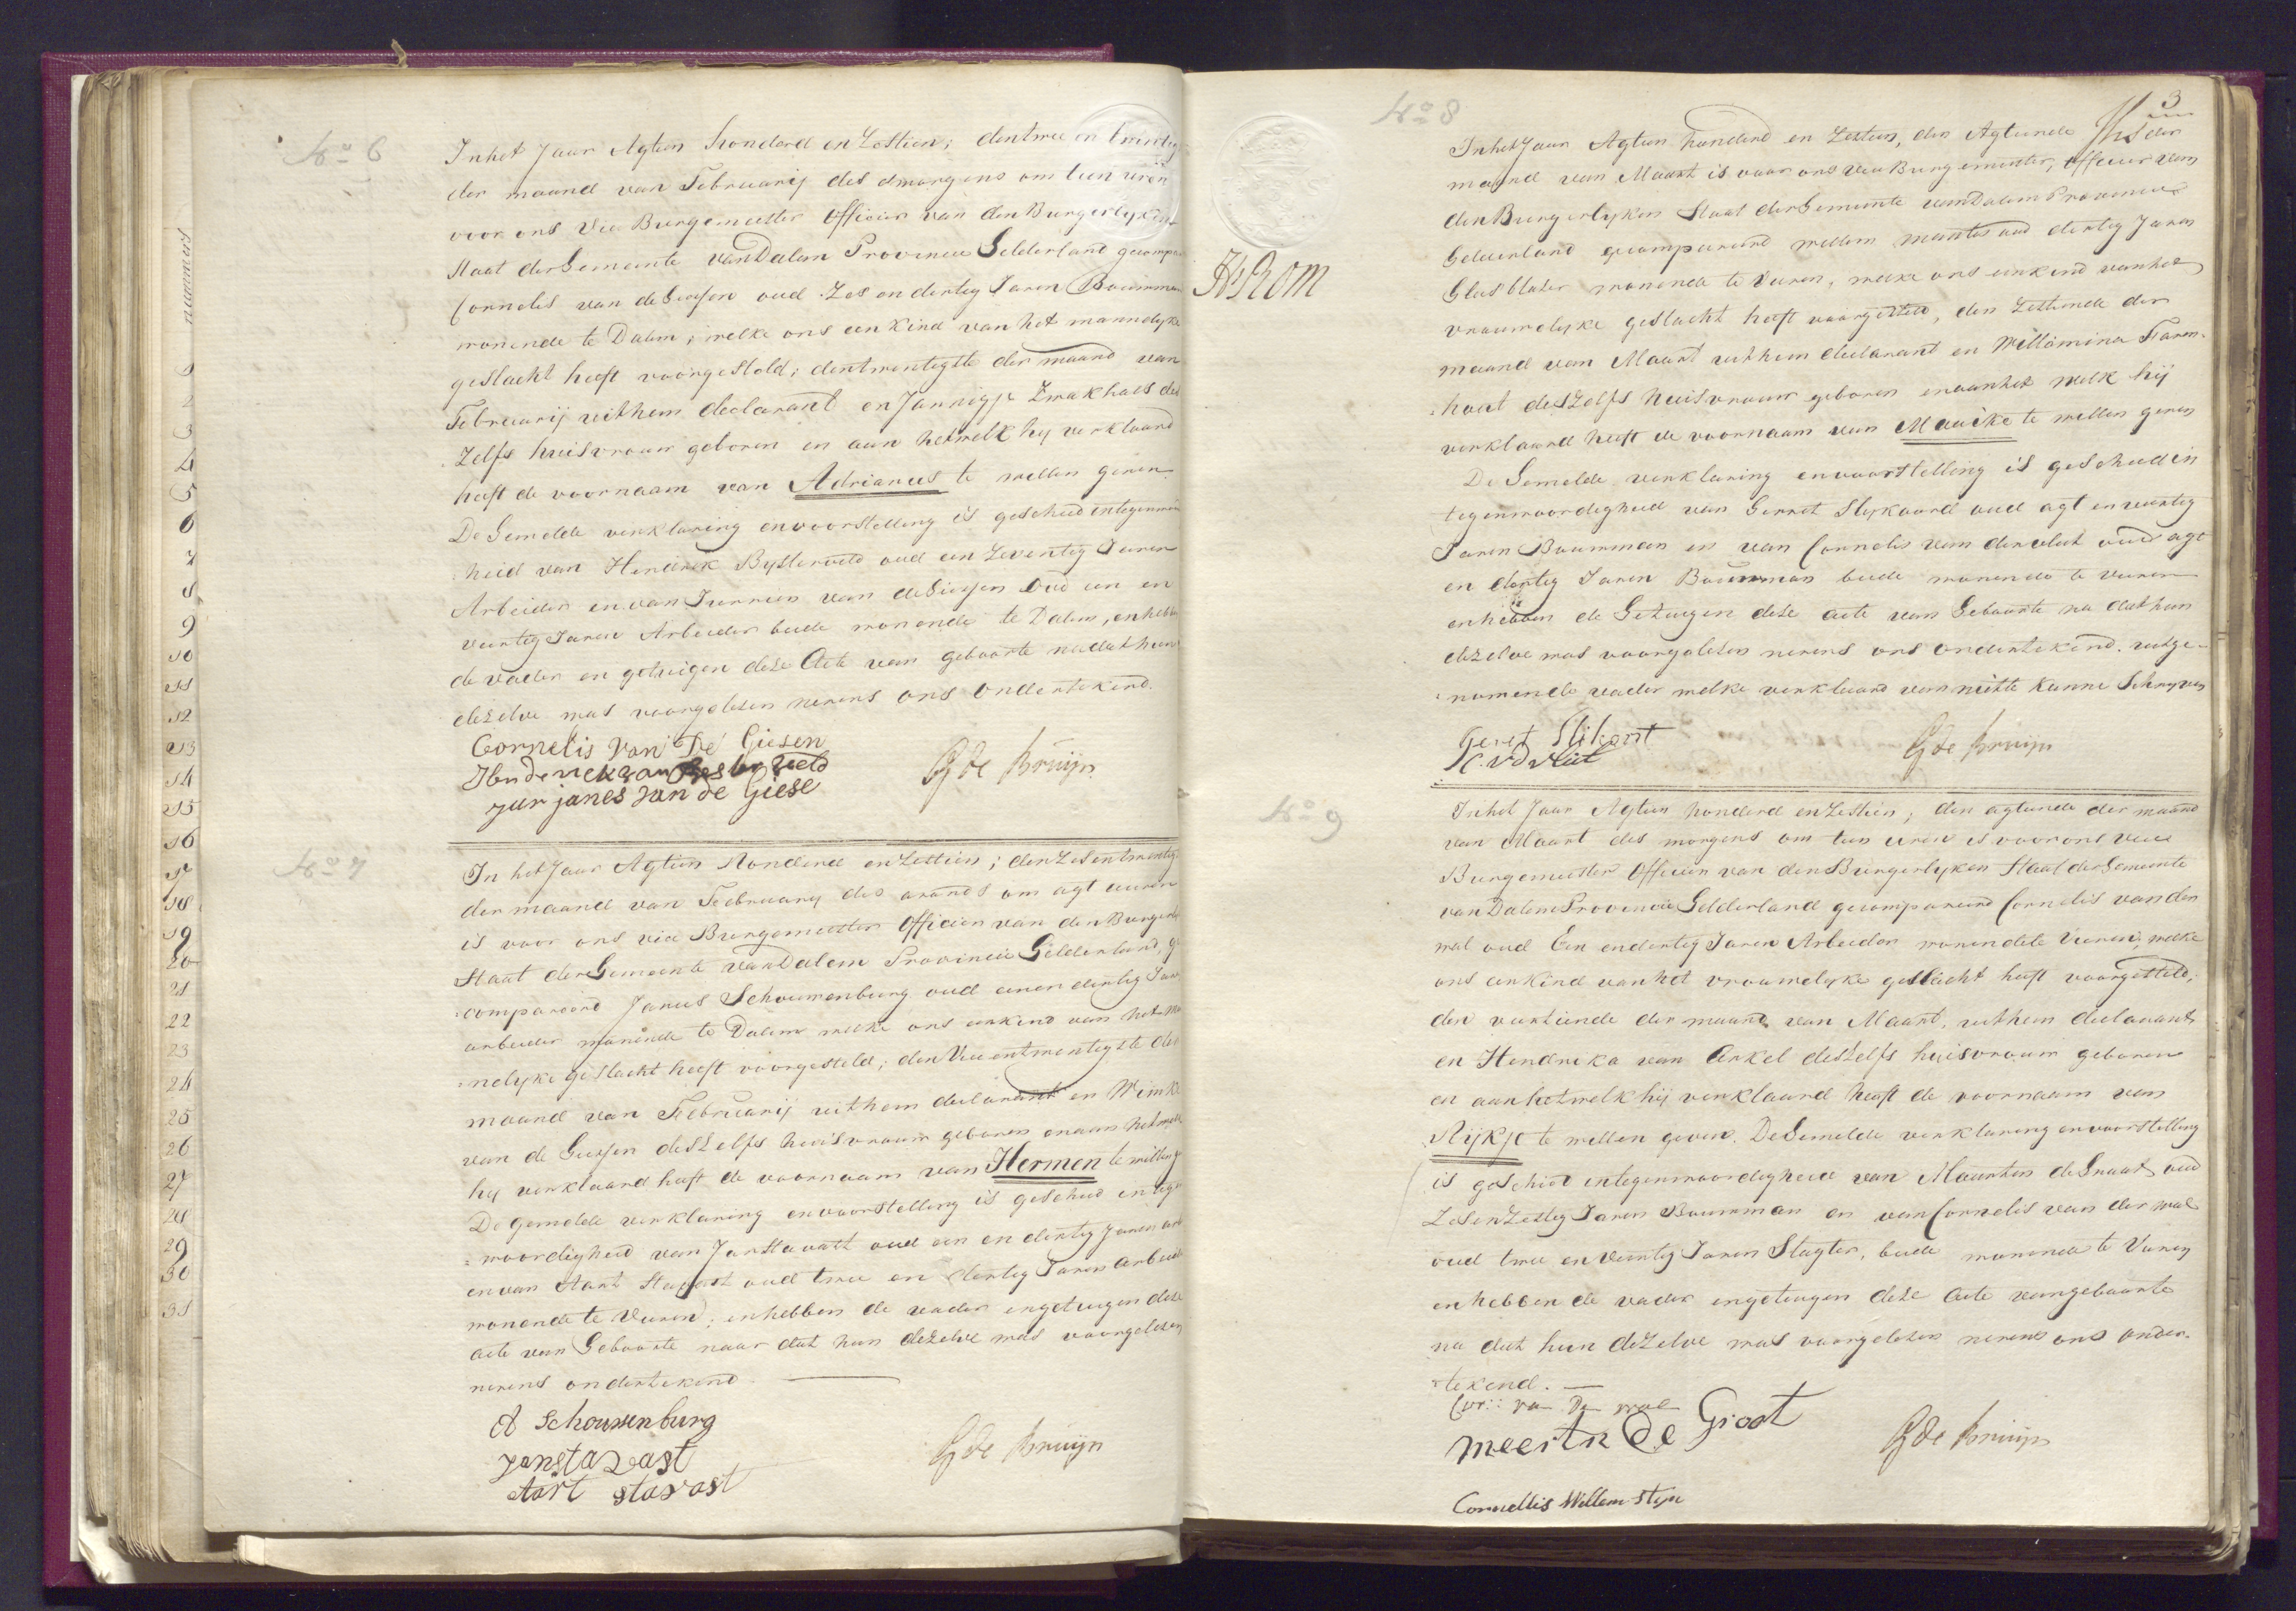 nummers
1
2
3
4
5
6
7
8
9
10
11
12
13
14
15
16
17
18
19
20
21
22
23
24
25
26
27
28
29
30
31
No 6
In het Jaar Agtien honderd en Zestien; den twee en twintig
der maand van Februarij des smorgens om tien uren
voor ons Vice Burgemeester Officier van den Burgerlyken
Staat der Gemeente van Dalem Provincie Gelderland gecompa
Cornelis van de Giessen oud Zes en dertig Jaren Bouwman
wonende te Dalem, welke ons een kind van het mannelyke
geslacht heeft voorgesteld; den twentigste der maand van
Februarij uit hem declarant en Jannigje Zwakhals des
zelfs huisvrouw geboren en aan het welk hy verklaard
heeft de voornaam van Adrianus te willen geven
De Gemelde verklaring en voorstelling is geschied in tegenwoor
heid van Hendrik Bysterveld oud een Zeventig Jaren
Arbeider en van Jurrien van de Giessen Oud een en
veertig Jaren Arbeider beide wonende te Dalem, en hebben
de vader en getuigen deze Acte van geboorte nadat hun
dezelve was voorgelezen nevens ons ondertekend.
Cornelis van De Giesen
Henderick van Bester veld
jur janes van de Giese
G de Bruijn
No 7
In het Jaar Agtien Honderd en Zestien; den Zes en twentig
der maand van Februarij des avonds om agt uuren
is voor ons vice Burgemeester Officier van den Burgerly
Staat der Gemeente van Dalem Provincie Gelderland, ge
compareerd Janus Schouwenburg oud eenen dertig Jaar
arbeider wonende te Dalem welke ons een kind van het ma
nelyke geslacht heeft voorgesteld; den Vier en twentigste der
maand van Februarij uit hem declarant en Wimke
van de Giessen deszelfs huisvrouw geboren en aan het welk
hy verklaard heeft de voornaam van Hermen te willen g
De gemelde verklaring en voorstelling is geschied in tegen
woordigheid van Jan Stavast oud een en dertig Jaren arb
en van Aart Stavast oud twee en dertig Jaren Arbeid
wonende te Vuren; en hebben de vader en getuigen deze
acte van Geboorte naar dat hun dezelve was voorgelezen
nevens ondertekend.
A Schouwenburg
Jan stavast
Aart stavast
G de Bruijn
3
No 8
In het Jaar Agtien honderd en Zestien, den Agtiende der
maand van Maart is voor ons vice Burgemeester, Officier van
den Burgerlyken Staat der Gemeente van Dalem Provincie
Gelderland gecompareerd Willem oud dertig Jaren
Glasblazer wonende te Vuren, welke ons een kind van het
vrouwelyke geslacht heeft voorgesteld, den Zestiende der
maand van Maart uit hem declarant en Willemina Faren
hout deszelfs huisvrouw geboren en aan het welk hij
verklaard heeft de voornaam van Maaike te willen geven
De Gemelde verklaring en voorstelling is geschied in
tegenwoordigheid van Gerret Slykoord oud agt en veertig
Jaren Bouwman en van Cornelis van der vliet oud agt
en dertig Jaren Bouwman beide wonende te vuren
en hebben de Getuigen deze acte van Geboorte na dat hun
dezelve was voorgelezen nevens ons ondertekend. uitge
nomen de vader welke verklaard van niette kunne Schryven
Geret Slikoort
C. v d vliet
G de Bruijn
No 9
In het Jaar Agtien honderd en Zestien; den agtiende der maand
van Maart des morgens om tien uren is voor ons vice
Burgemeester Officier van den Burgerlyken Staat der Gemeente
van Dalem Provincie Gelderland gecompareerd Cornelis van der
wal oud Een en dertig Jaren Arbeider wonende te Vuren; welke
ons een kind van het vrouwelyke geslacht heeft voorgesteld;
den veertiende der maand van Maart, uit hem declarant
en Hendreka van Arkel deszelfs huisvrouw geboren
en aan het welk hij verklaard heeft de voornaam van
Nijkje te willen geven. De Gemelde verklaring en voorstelling
is geschied in tegenwoordigheid van Maarten de Groot oud
Zes en Zestig Jaren Bouwman en van Cornelis van der wal
oud twee en Veertig Jaren Slagter, beide wonende te Vuren
en hebben de vader en getuigen deze Acte van geboorte
na dat hun dezelve was voorgelezen nevens ons onder
tekend.
Cor: van De wal
Meerten De Groot
Cornellis Willem Styn
G de Bruijn